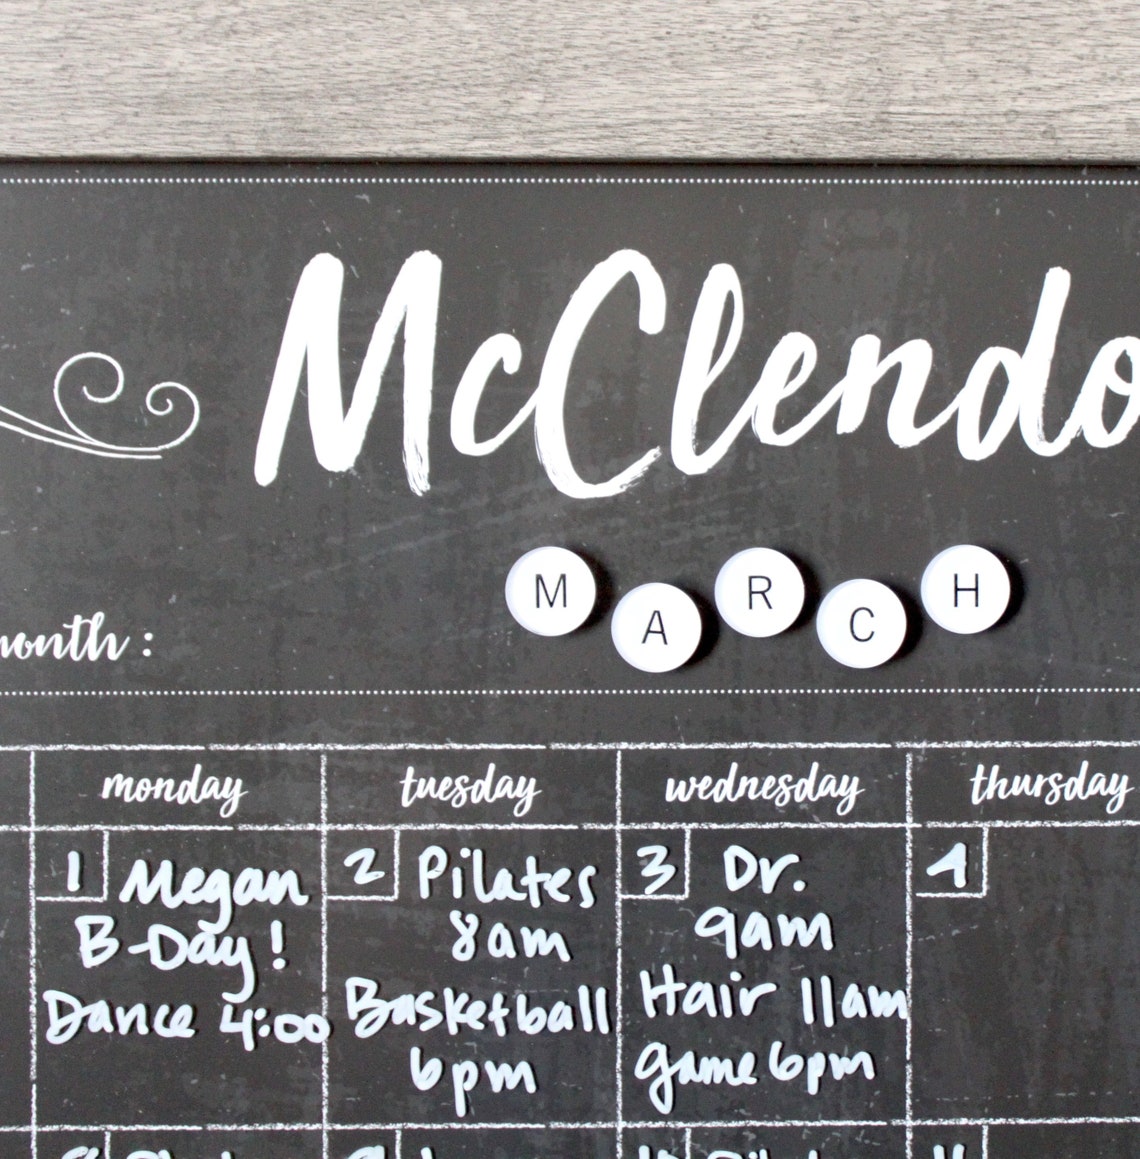 McClendo
M A R C H
month :
monday tuesday wednesday thursday
1 Megan
B-Day!
Dance 4:00
2 Pilates
8am
Basketball
6pm
3 Dr.
9am
Hair 11am
game 6pm
4